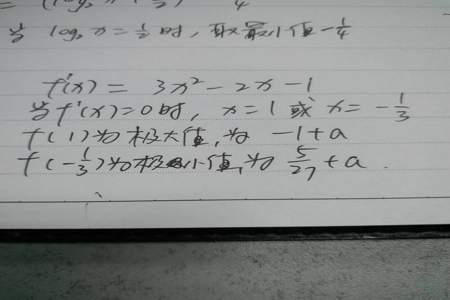 = (log₂ x - 1/2)² - 1/4
当 log₂ x = 1/2 时, 取最小值 -1/4
f'(x) = 3x² - 2x - 1
当 f'(x) = 0 时, x = 1 或 x = -1/3
f(1)为极大值,为 -1+a
f(-1/3)为极小值,为 5/27 + a.